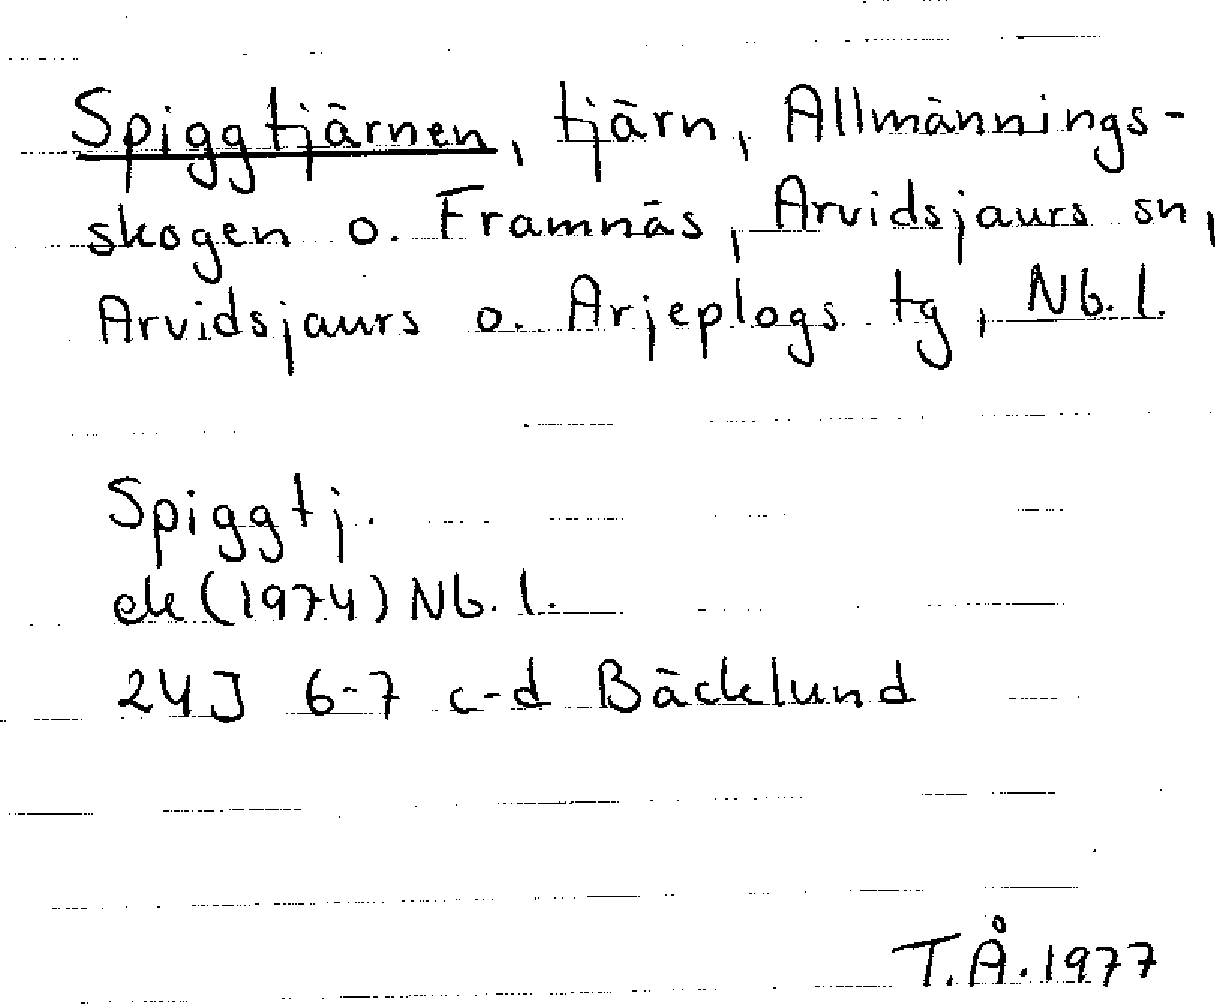 Spiggtjärnen, tjärn, Allmännings-
skogen o. Framnäs, Arvidsjaurs sn,
Arvidsjaurs o. Arjeplogs tg, Nb. l.
Spiggtj.
ek (1974) Nb. l.
24J 6-7 c-d Bäcklund
T.Å. 1977